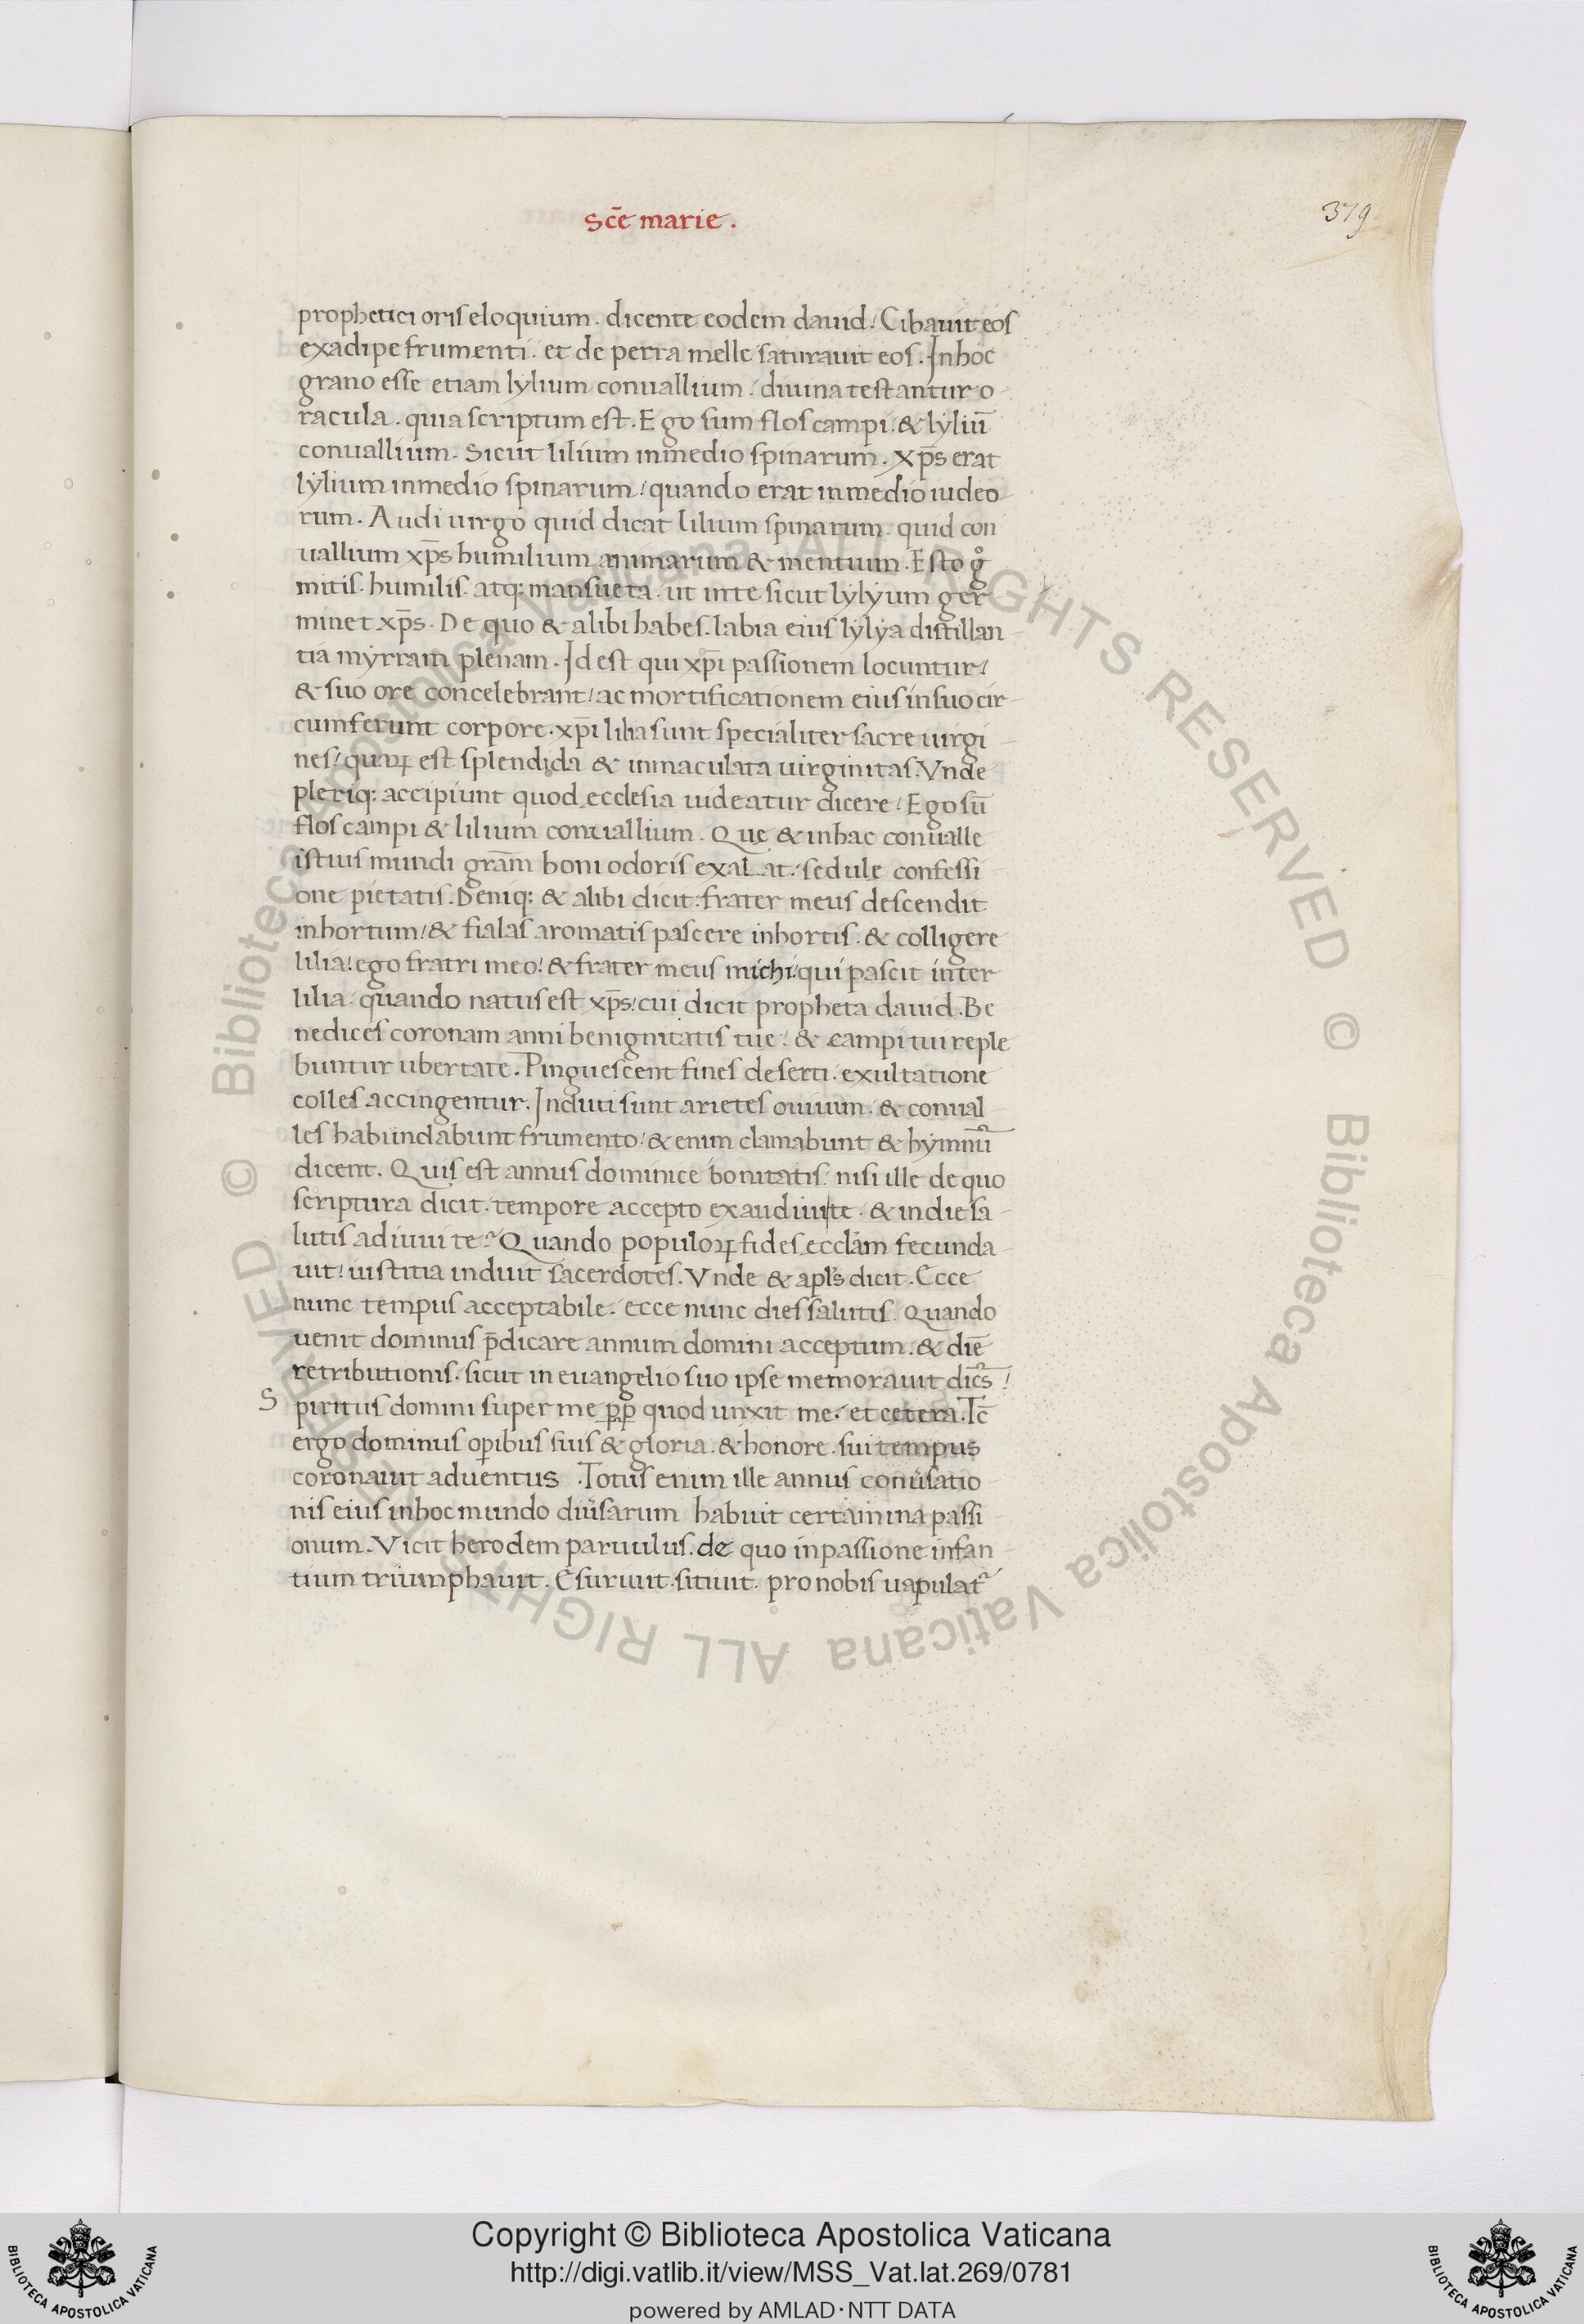 Scē marie.
379
prophetici oris eloquium. dicente eodem dauid! Cibauit eos
ex adipe frumenti. et de petra melle saturauit eos. In hoc
grano esse etiam lylium conuallium. diuina testantur o
racula. quia scriptum est. Ego sum flos campi. & lyliū
conuallium. Sicut lilium in medio spinarum. xp̄s erat
lylium in medio spinarum! quando erat in medio iudeo
rum. Audi uirgo quid dicat lilium spinarum. quid con
uallium xp̄s humilium animarum & mentium. Esto gͦ
mitis. humilis. atq: mansueta. ut in te sicut lylyum ger
minet xp̄s. De quo & alibi habes. labia eius lylya distillan
tia myrram plenam. Id est qui xp̄i passionem locuntur!
& suo ore concelebrant! ac mortificationem eius in suo cir
cumferunt corpore. xp̄i lilia sunt specialiter sacre uirgi
nes! quaꝝ est splendida & inmaculata uirginitas. Vnde
pleriq: accipiunt quod ecclesia uideatur dicere! Ego sū
flos campi & lilium conuallium. Quę & in hac conualle
istius mundi grām boni odoris exalat. sedule confessi
one pietatis. Deniq: & alibi dicit. frater meus descendit
in hortum! & fialas aromatis pascere in hortis. & colligere
lilia! ego fratri meo! & frater meus michi! qui pascit inter
lilia. quando natus est xp̄s! cui dicit propheta dauid. Be
nedices coronam anni benignitatis tue! & campi tui reple
buntur ubertate. Pinguescent fines deserti. exultatione
colles accingentur. Induti sunt arietes ouium. & conual
les habundabunt frumento! & enim clamabunt & hymnū
dicent. Quis est annus dominice bonitatis. nisi ille de quo
scriptura dicit. tempore accepto exaudiui te. & in die sa
lutis adiuui te. Quando populoꝝ fides ecclām fecunda
uit! iustitia induit sacerdotes. Vnde & apl's dicit. Ecce
nunc tempus acceptabile. ecce nunc dies salutis. Quando
uenit dominus p̄dicare annum domini acceptum. & diē
retributionis. sicut in euangelio suo ipse memorauit dicēs!
S piritus domini super me ꝓꝑ quod unxit me. et cetera. Tc̄
ergo dominus oꝑibus suis & gloria. & honore. sui tempus
coronauit aduentus. Totus enim ille annus conuersatio
nis eius in hoc mundo diuersarum habuit certamina passi
onum. Vicit herodem paruulus. de quo in passione infan
tium triumphauit. Esuriuit. sitiuit. pro nobis uapulat
© Biblioteca Apostolica Vaticana ALL RIGHTS RESERVED © Biblioteca Apostolica Vaticana ALL RIGHTS RESERVED
Copyright © Biblioteca Apostolica Vaticana
http://digi.vatlib.it/view/MSS_Vat.lat.269/0781
powered by AMLAD·NTT DATA
BIBLIOTECA APOSTOLICA VATICANA
BIBLIOTECA APOSTOLICA VATICANA